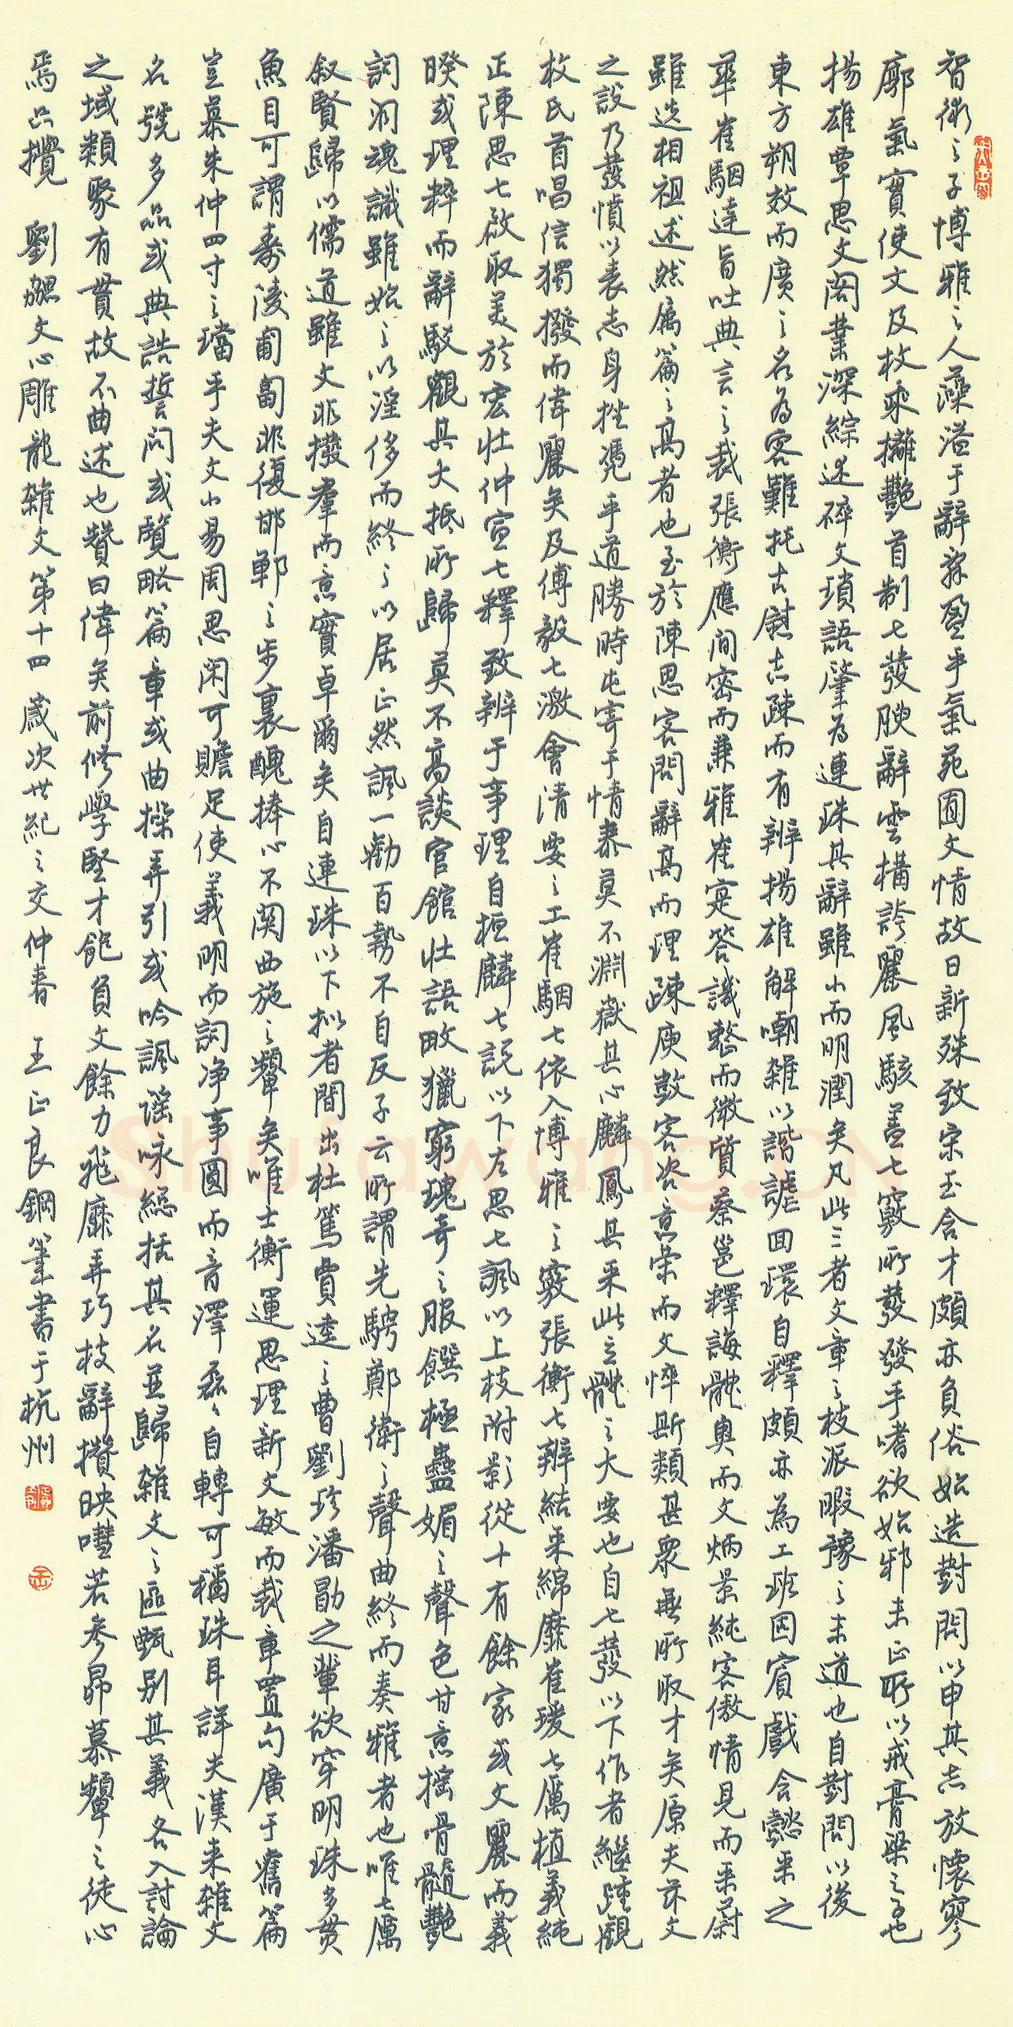 智術之子博雅之人藻溢于辭辭盈乎氣苑囿文情故日新殊致宗玉含才頗亦負俗始造對問以申其志放懷寥
廓氣實使文及枚乘攡艷首制七發腴辭雲構誇麗風駭蓋七竅所發發乎嗜欲始邪末正所以戒膏粱之子也
揚雄覃思文闊業深綜述碎文瑣語肇為連珠其辭雖小而明潤矣凡此三者文章之枝派暇豫之末造也自對問以後
東方朔效而廣之名為客難托古慰志疎而有辨揚雄解嘲雜以諧謔回環自釋頗亦為工班固賓戲含懿采之
華崔駰達旨吐典言之裁張衡應間密而兼雅崔寔答譏整而微質蔡邕釋誨體奧而文炳景純客傲情見而采蔚
雖迭相祖述然屬篇之高者也至於陳思客問辭高而理疎庾敳客咨意榮而文悴斯類甚衆無所取才矣原夫茲文
之設乃發憤以表志身挫憑乎道勝時屯寄于情泰莫不淵嶽其心麟鳳其采此立體之大要也自七發以下作者繼踵觀
枚氏首唱信獨撥而偉麗矣及傅毅七激會清要之工崔駰七依入博雅之竅張衡七辨結采綿靡崔瑗七厲植義純
正陳思七啟取美於宏壯仲宣七釋致辨于事理自桓麟七説以下左思七諷以上枝附影從十有餘家或文麗而義
暌或理粹而辭駁觀其大抵所歸莫不高談宮館壯語畋獵窮瑰奇之服饌極蠱媚之聲色甘意搖骨髓艷
詞洞魂識雖始之以淫侈而終之以居正然諷一勸百勢不自反子云所謂先騁鄭衛之聲曲終而奏雅者也唯七厲
叙賢歸以儒道雖文非撥羣而意實卓爾矣自連珠以下拟者間出杜篤賈逵之曹劉珍潘勖之輩欲穿明珠多貫
魚目可謂壽陵匍匐非復邯鄲之步裏醜捧心不関西施之顰矣唯士衡運思理新文敏而裁章置句廣于舊篇
豈慕朱仲四寸之璫乎夫文小易周思闲可贍足使義明而詞净事圓而音澤磊磊自轉可稱珠耳詳夫漢来雜文
名號多品或典誥誓问或覽略篇章或曲操弄引或吟諷謠咏總括其名並歸雜文之區甄别其義各入討論
之域類聚有貫故不曲述也贊曰偉矣前修學堅才飽負文餘力飛靡弄巧枝辭攢映嘒若參昴慕顰之徒心
焉只攪　劉勰文心雕龍雜文第十四　歲次世紀之交仲春　王正良鋼筆書于杭州
Shufawang.CN